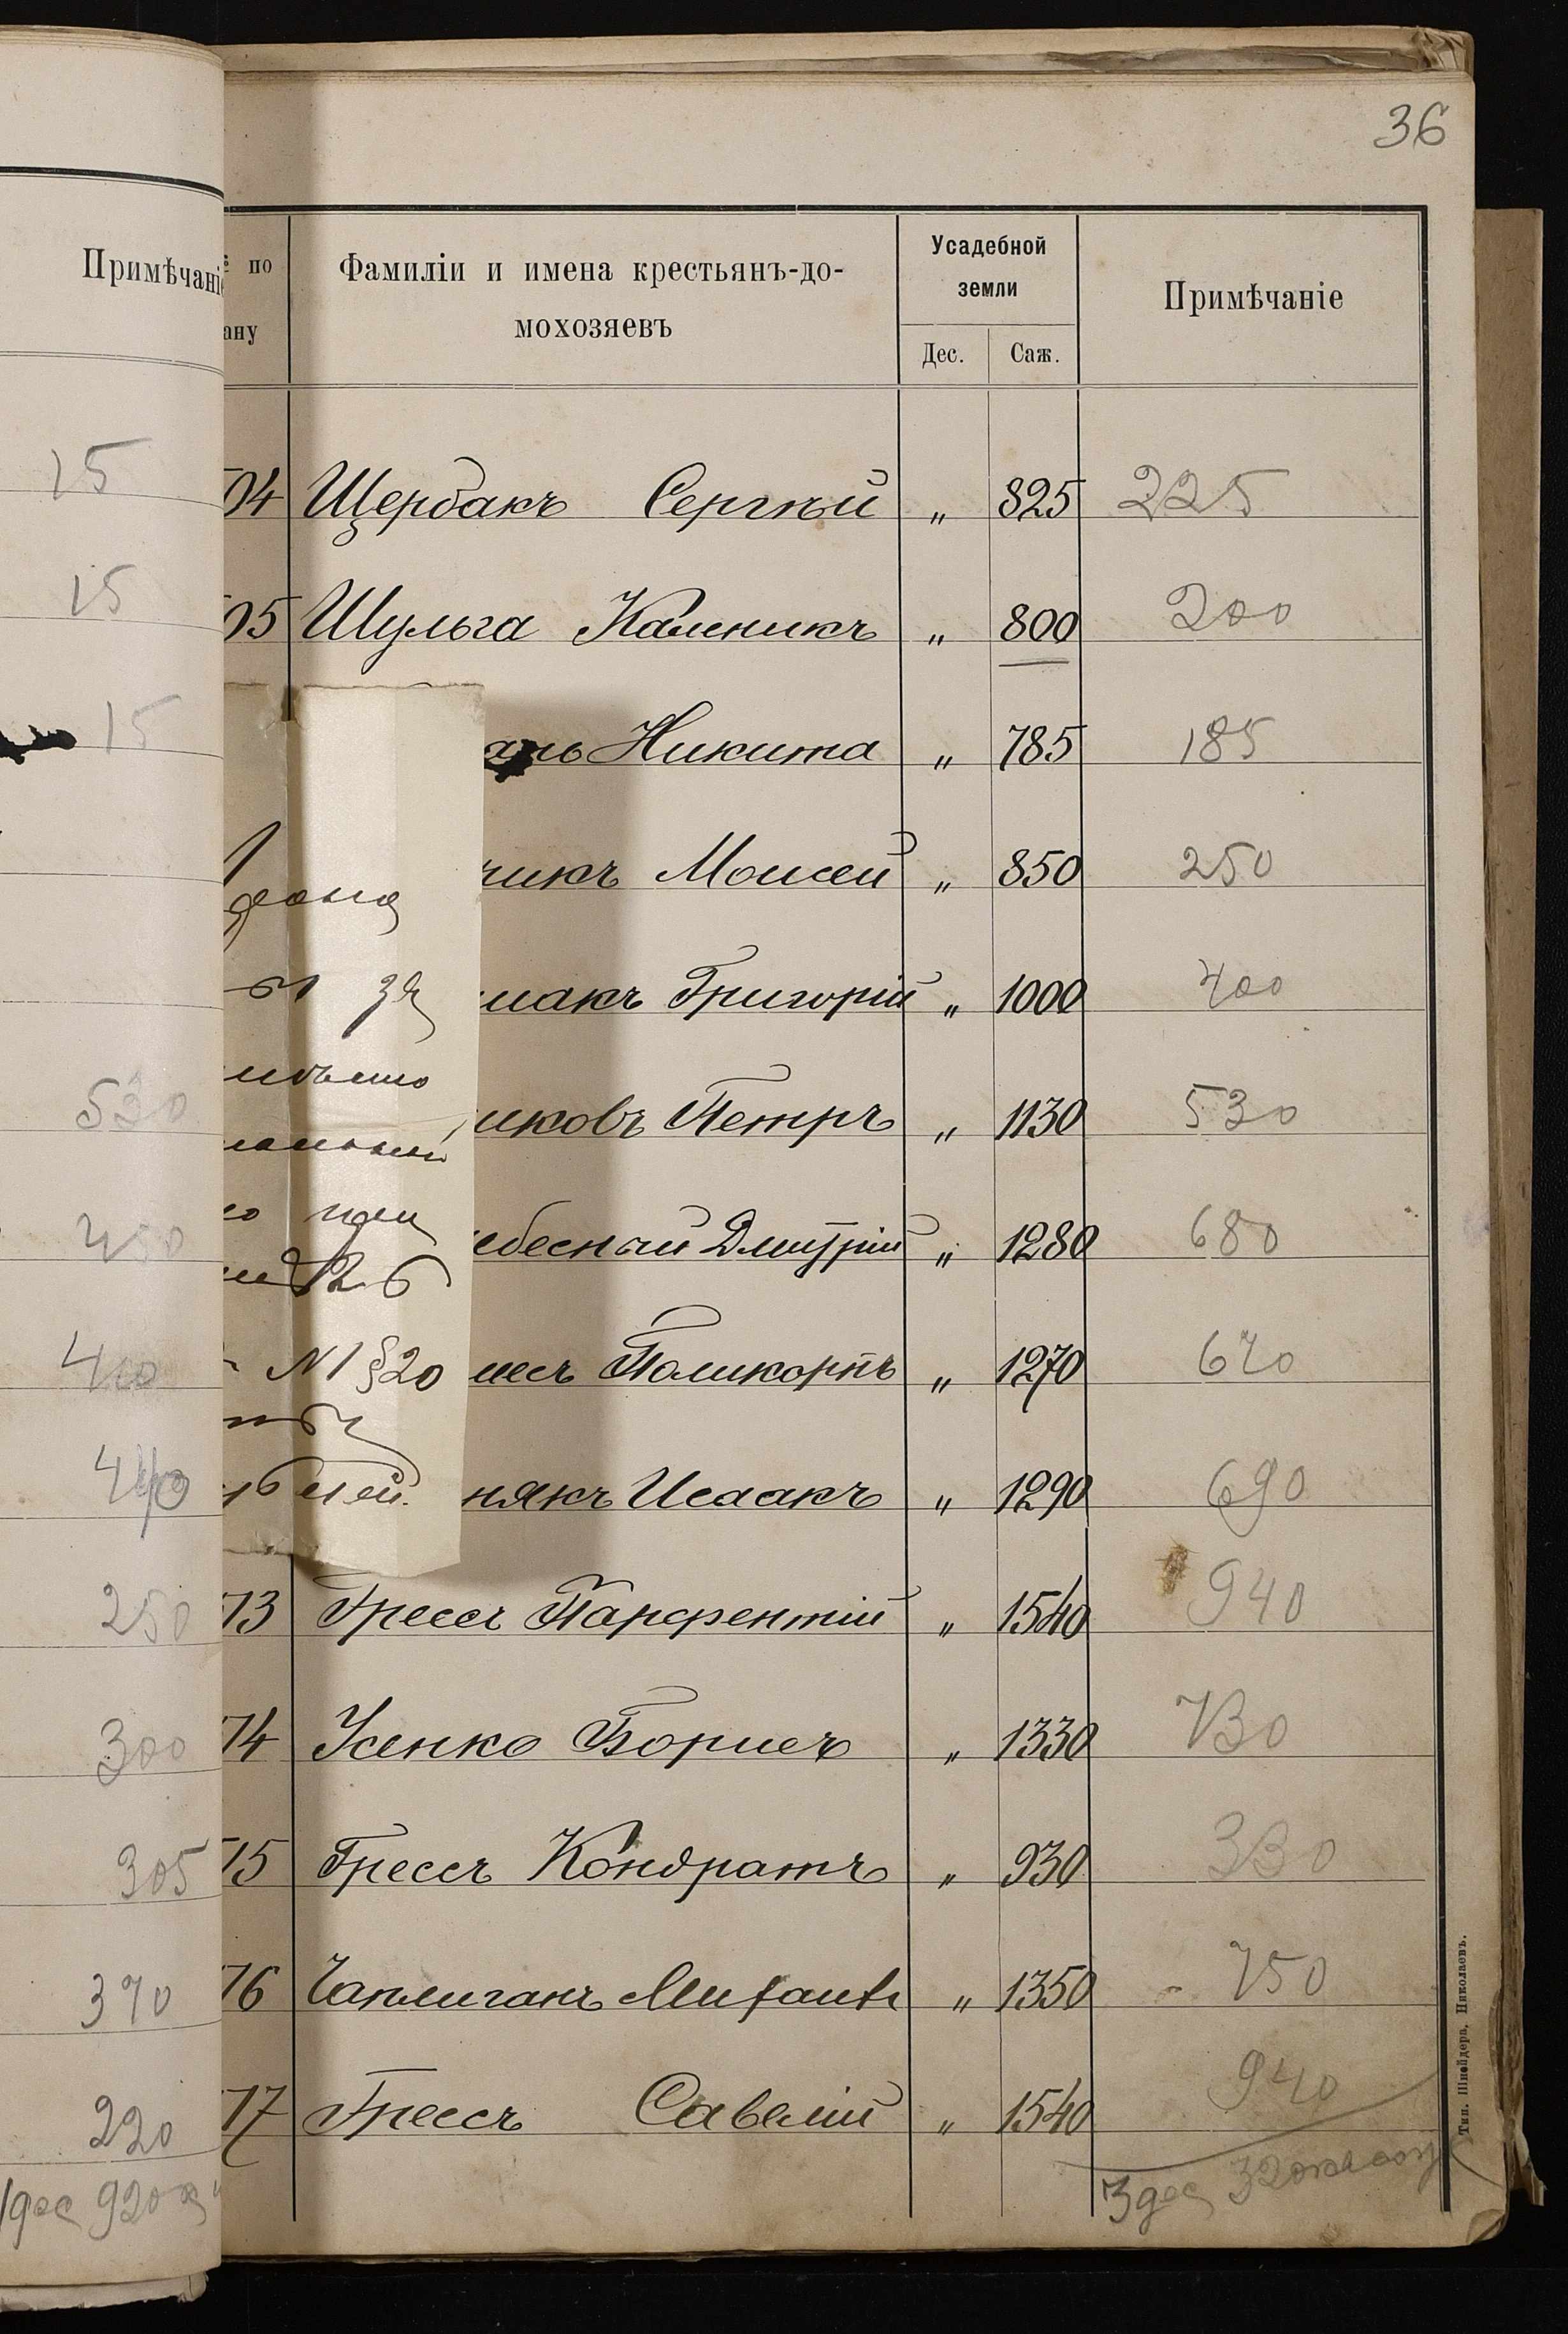 36
Примѣчаніе
по
ану
Фамиліи и имена крестьянъ-до-
мохозяевъ
Усадебной
земли
Дес.
Саж.
Примѣчаніе
15
04 Щербакъ Сергѣй „ 825 225
15
05 Шульга Каленикъ „ 800 200
15
Никита „ 785 185
чикъ Моисей „ 850 250
макъ Григорій „ 1000 400
530
иковъ Петръ „ 1130 530
450
ебесный Дмитрій „ 1280 680
400
N1 §20
Поликарпъ „ 1270 670
440
рублей.
някъ Исаакъ „ 1290 690
250
13 Грессъ Парфентій „ 1540 940
300
14 Усенко Борисъ „ 1330 730
305
15 Грессъ Кондратъ „ 930 330
370
16 Чаплиганъ Михаилъ „ 1350 - 750
220
17 Грессъ Савелій „ 1540 940
1 дес 920
3 дес 320
Тип. Шнейдера, Николаевъ.